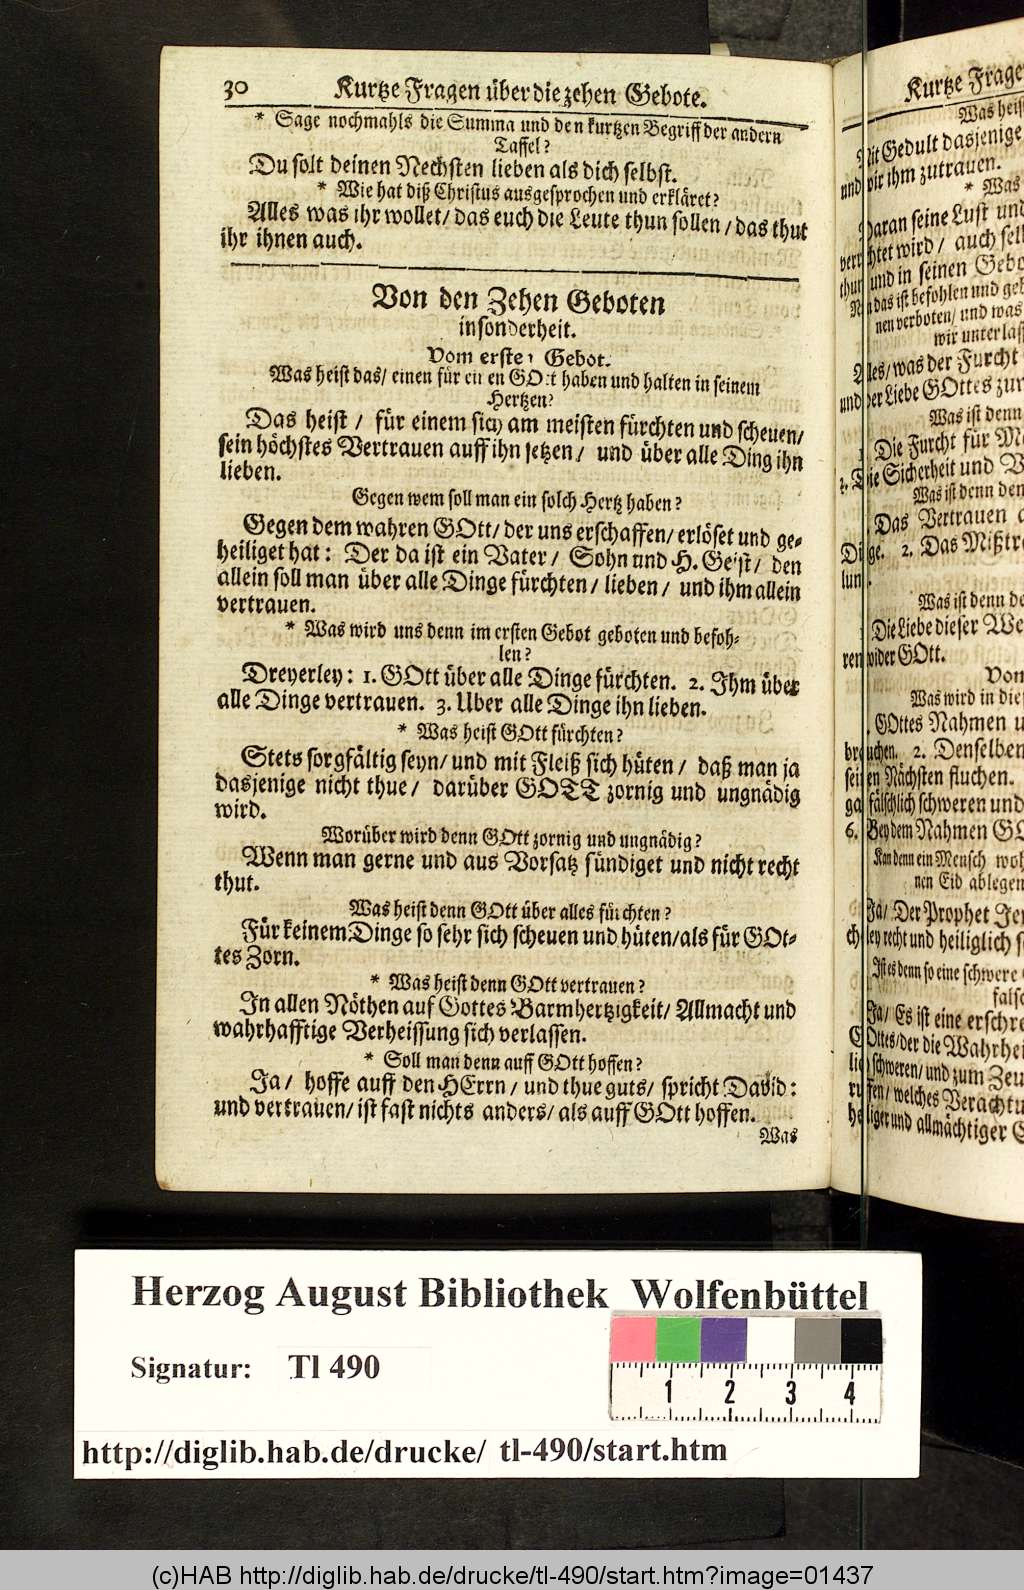 30 Kurtze Fragen über die zehen Gebote.
* Sage nochmahls die Summa und den kurtzen Begriff der andern
Taffel?
Du solt deinen Nechsten lieben als dich selbst.
* Wie hat diß Christus ausgesprochen und erkläret?
Alles was ihr wollet / das euch die Leute thun sollen / das thut
ihr ihnen auch.
Von den Zehen Geboten
insonderheit.
Vom ersten Gebot.
Was heist das / einen für einen GOtt haben und halten in seinem
Hertzen?
Das heist / für einem sich am meisten fürchten und scheuen /
sein höchstes Vertrauen auff ihn setzen / und über alle Ding ihn
lieben.
Gegen wem soll man ein solch Hertz haben?
Gegen dem wahren GOtt / der uns erschaffen / erlöset und ge-
heiliget hat: Der da ist ein Vater / Sohn und H. Geist / den
allein soll man über alle Dinge fürchten / lieben / und ihm allein
vertrauen.
* Was wird uns denn im ersten Gebot geboten und befoh-
len?
Dreyerley: 1. GOtt über alle Dinge fürchten. 2. Ihm über
alle Dinge vertrauen. 3. Uber alle Dinge ihn lieben.
* Was heist GOtt fürchten?
Stets sorgfältig seyn / und mit Fleiß sich hüten / daß man ja
dasjenige nicht thue / darüber GOTT zornig und ungnädig
wird.
Worüber wird denn GOtt zornig und ungnädig?
Wenn man gerne und aus Vorsatz sündiget und nicht recht
thut.
Was heist denn GOtt über alles fürchten?
Für keinem Dinge so sehr sich scheuen und hüten / als für GOt-
tes Zorn.
* Was heist denn GOtt vertrauen?
In allen Nöthen auf Gottes Barmhertzigkeit / Allmacht und
wahrhafftige Verheissung sich verlassen.
* Soll man denn auff GOtt hoffen?
Ja / hoffe auff den HErrn / und thue guts / spricht David:
und vertrauen / ist fast nichts anders / als auff GOtt hoffen.
Was
Kurtze Frage
Was heist
Mit Gedult dasjenige
und wir ihm zutrauen.
* Was
Daran seine Lust und
verrichtet wird / auch sel
thun und in seinen Gebo
das ist befohlen und geb
nen verboten / und was
wir unterlas
Alles / was der Furcht
und der Liebe GOttes zu
Was ist denn
1. Die Furcht für Me
2. Die Sicherheit und V
Was ist denn den
Das Vertrauen
Dinge. 2. Das Mißtr
lung.
Was ist denn de
Die Liebe dieser We
ren wider GOtt.
Vom
Was wird in die
GOttes Nahmen
brauchen. 2. Denselben
seinen Nächsten fluchen.
fälschlich schweren und
6. Bey dem Nahmen GO
Kan denn ein Mensch wol
nen Eid ablegen
Ja / Der Prophet Je
recht und heiliglich
Ist es denn so eine schwere
falsc
Ja / Es ist eine erschre
GOttes / der die Wahrhei
lich schweren / und zum Zeu
ruffen / welches Verachtu
heiliger und allmächtiger
Herzog August Bibliothek Wolfenbüttel
Signatur: Tl 490
1 2 3 4
http://diglib.hab.de/drucke/ tl-490/start.htm
(c)HAB http://diglib.hab.de/drucke/tl-490/start.htm?image=01437